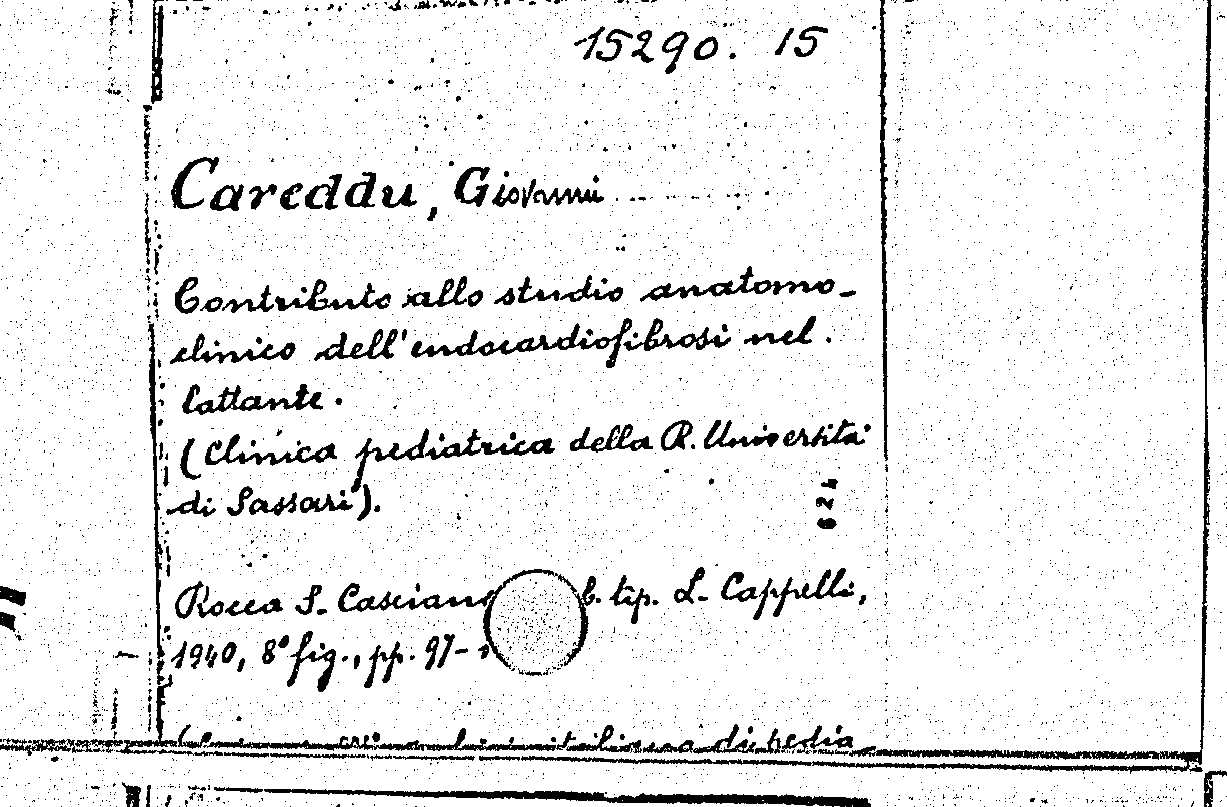 15290. 15
Careddu, Giovanni
Contributo allo studio anatomo-
clinico dell'endocardiofibrosi nel.
lattante.
(Clinica pediatrica della R. Università
di Sassari).
624
Rocca S. Casciano b. tip. L. Cappelli,
1940, 8° fig., pp. 97-
di pedia